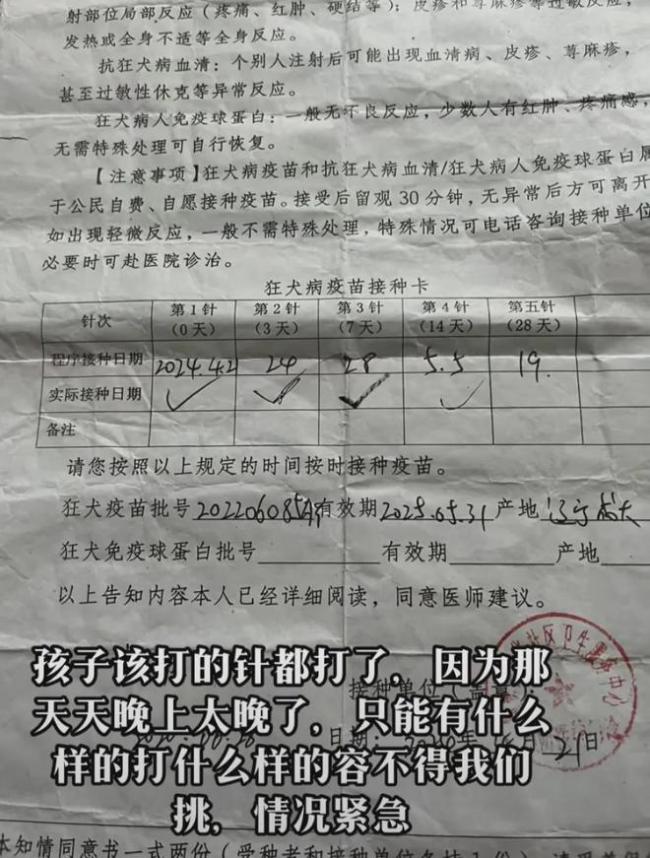 射部位局部反应（疼痛、红肿、硬结等）；皮疹和荨麻疹等过敏反应，
发热或全身不适等全身反应。
抗狂犬病血清：个别人注射后可能出现血清病、皮疹、荨麻疹，
甚至过敏性休克等异常反应。
狂犬病人免疫球蛋白：一般无不良反应，少数人有红肿、疼痛感，
无需特殊处理可自行恢复。
【注意事项】狂犬病疫苗和抗狂犬病血清/狂犬病人免疫球蛋白属
于公民自费、自愿接种疫苗。接受后留观 30 分钟，无异常后方可离开
如出现轻微反应，一般不需特殊处理，特殊情况可电话咨询接种单位
必要时可赴医院诊治。
狂犬病疫苗接种卡
针次 第1针（0天） 第2针（3天） 第3针（7天） 第4针（14天） 第五针（28天）
程序接种日期 2024.4.21 24 28 5.5 19.
实际接种日期 ✓ ✓ ✓ ✓
备注
请您按照以上规定的时间按时接种疫苗。
狂犬疫苗批号 有效期 2025.05.31 产地 辽宁成大
狂犬免疫球蛋白批号 有效期 产地
以上告知内容本人已经详细阅读，同意医师建议。
接种单位（盖章）：
日期： 年 月 21日
孩子该打的针都打了。因为那
天天晚上太晚了。只能有什么
样的打什么样的容不得我们
挑，情况紧急
本知情同意书一式两份（受种者和接种单位各